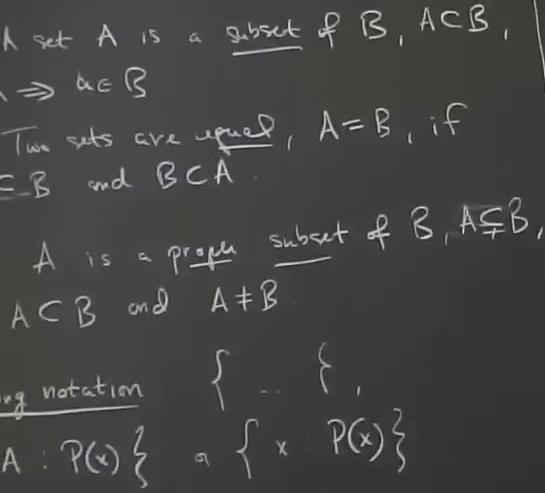 A set A is a subset of B, A⊂B,
⇒ a∈B
Two sets are equal, A=B, if
⊂B and B⊂A.
A is a proper subset of B, A⊊B,
A⊂B and A≠B
notation { .. {,
A : P(x)} a { x P(x)}